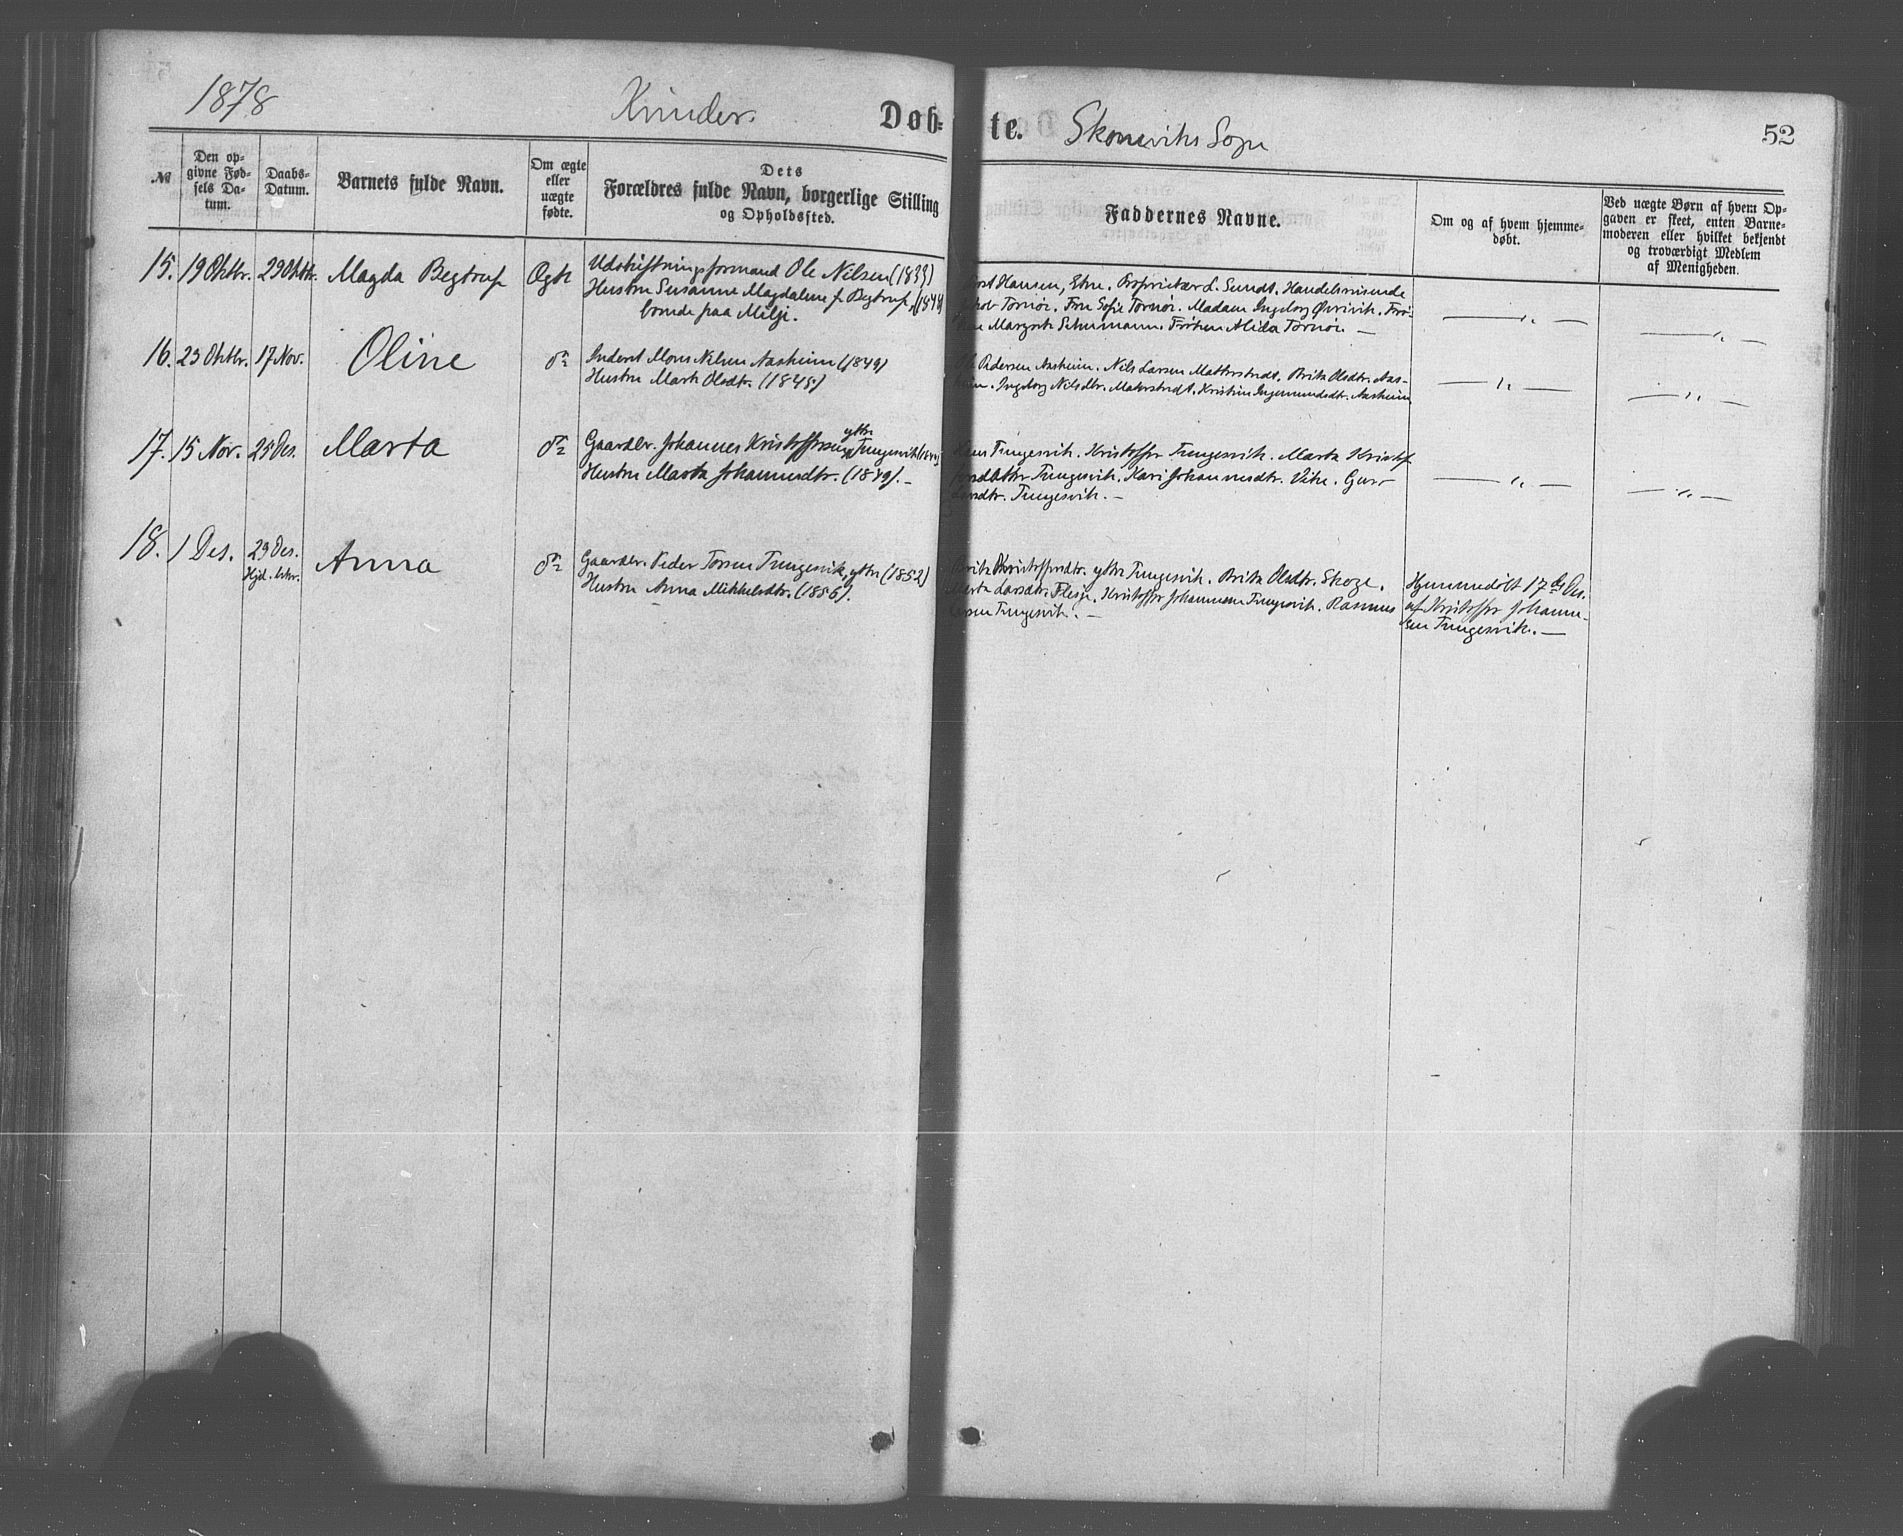 1878
Kvinder.
Døb-te.
Skoneviks Sogn
52
№
Den op-
givne Fød-
sels Da-
tum.
Daabs-
Datum.
Barnets fulde Navn.
Om ægte
eller
uægte
fødte.
Dets
Forældres fulde Navn, borgerlige Stilling
og Opholdssted.
Faddernes Navne.
Om og af hvem hjemme-
døbt.
Ved uægte Børn af hvem Op-
gaven er skeet, enten Barne-
moderen eller hvilket bekjendt
og troværdigt Medlem
af Menigheden.
15. 19 Oktbr. 29 Oktbr. Magda Begtrup Ægte
Udskiftningsformand Ole Nilsen (1833)
Hustru Susanne Magdalene f. Begtrup,
boende paa Milje.
Hansen, Etne. Proprietær L. Sundt. Handelsreisende
Tornøe. Fru Sofie Tornøe. Madam Ingeborg Øvrevik. Frø-
Margrete Schumann. Frøken Alida Tornøe. —
— „ —
— „ —
16. 23 Oktbr. 17 Nov. Oline do
Inderst Mons Nilsen Aasheim (1849)
Hustru Marta Olsdtr. (1845)
Pedersen Aasheim. Nils Larsen Matterstedt. Brita Olsdtr. Aas-
heim. Ingeborg Nilsdtr. Matterstedt. Kristine Ingemundsdtr. Aasheim.
— „ —
— „ —
17. 15 Nov. 25 Des. Marta do
Gaardbr. Johannes Kristoffersen ytre Tungesvik
Hustru Marta Johannesdtr. (1849). —
Tungesvik. Kristoffer Tungesvik. Marta Kristof-
fersdatter Tungesvik. Kari Johannesdtr. Vike. Guro
Larsdtr. Tungesvik. —
— „ —
— „ —
18. 1 Des. 29 Des.
Hjd. bekr.
Anna do
Gaardbr. Peder Torsen Tungesvik, ytre (1852)
Hustru Anna Mikkelsdtr. (1856).
Brita Kristoffersdtr. ytre Tungesvik. Brita Olsdtr. Skoge.
Marta Larsdtr. Flesje. Kristoffer Johannesen Tungesvik. Rasmus
Larsen Tungesvik. —
Hjemmedøbt 17de Des.
af Kristoffer Johanne-
sen Tungesvik. —